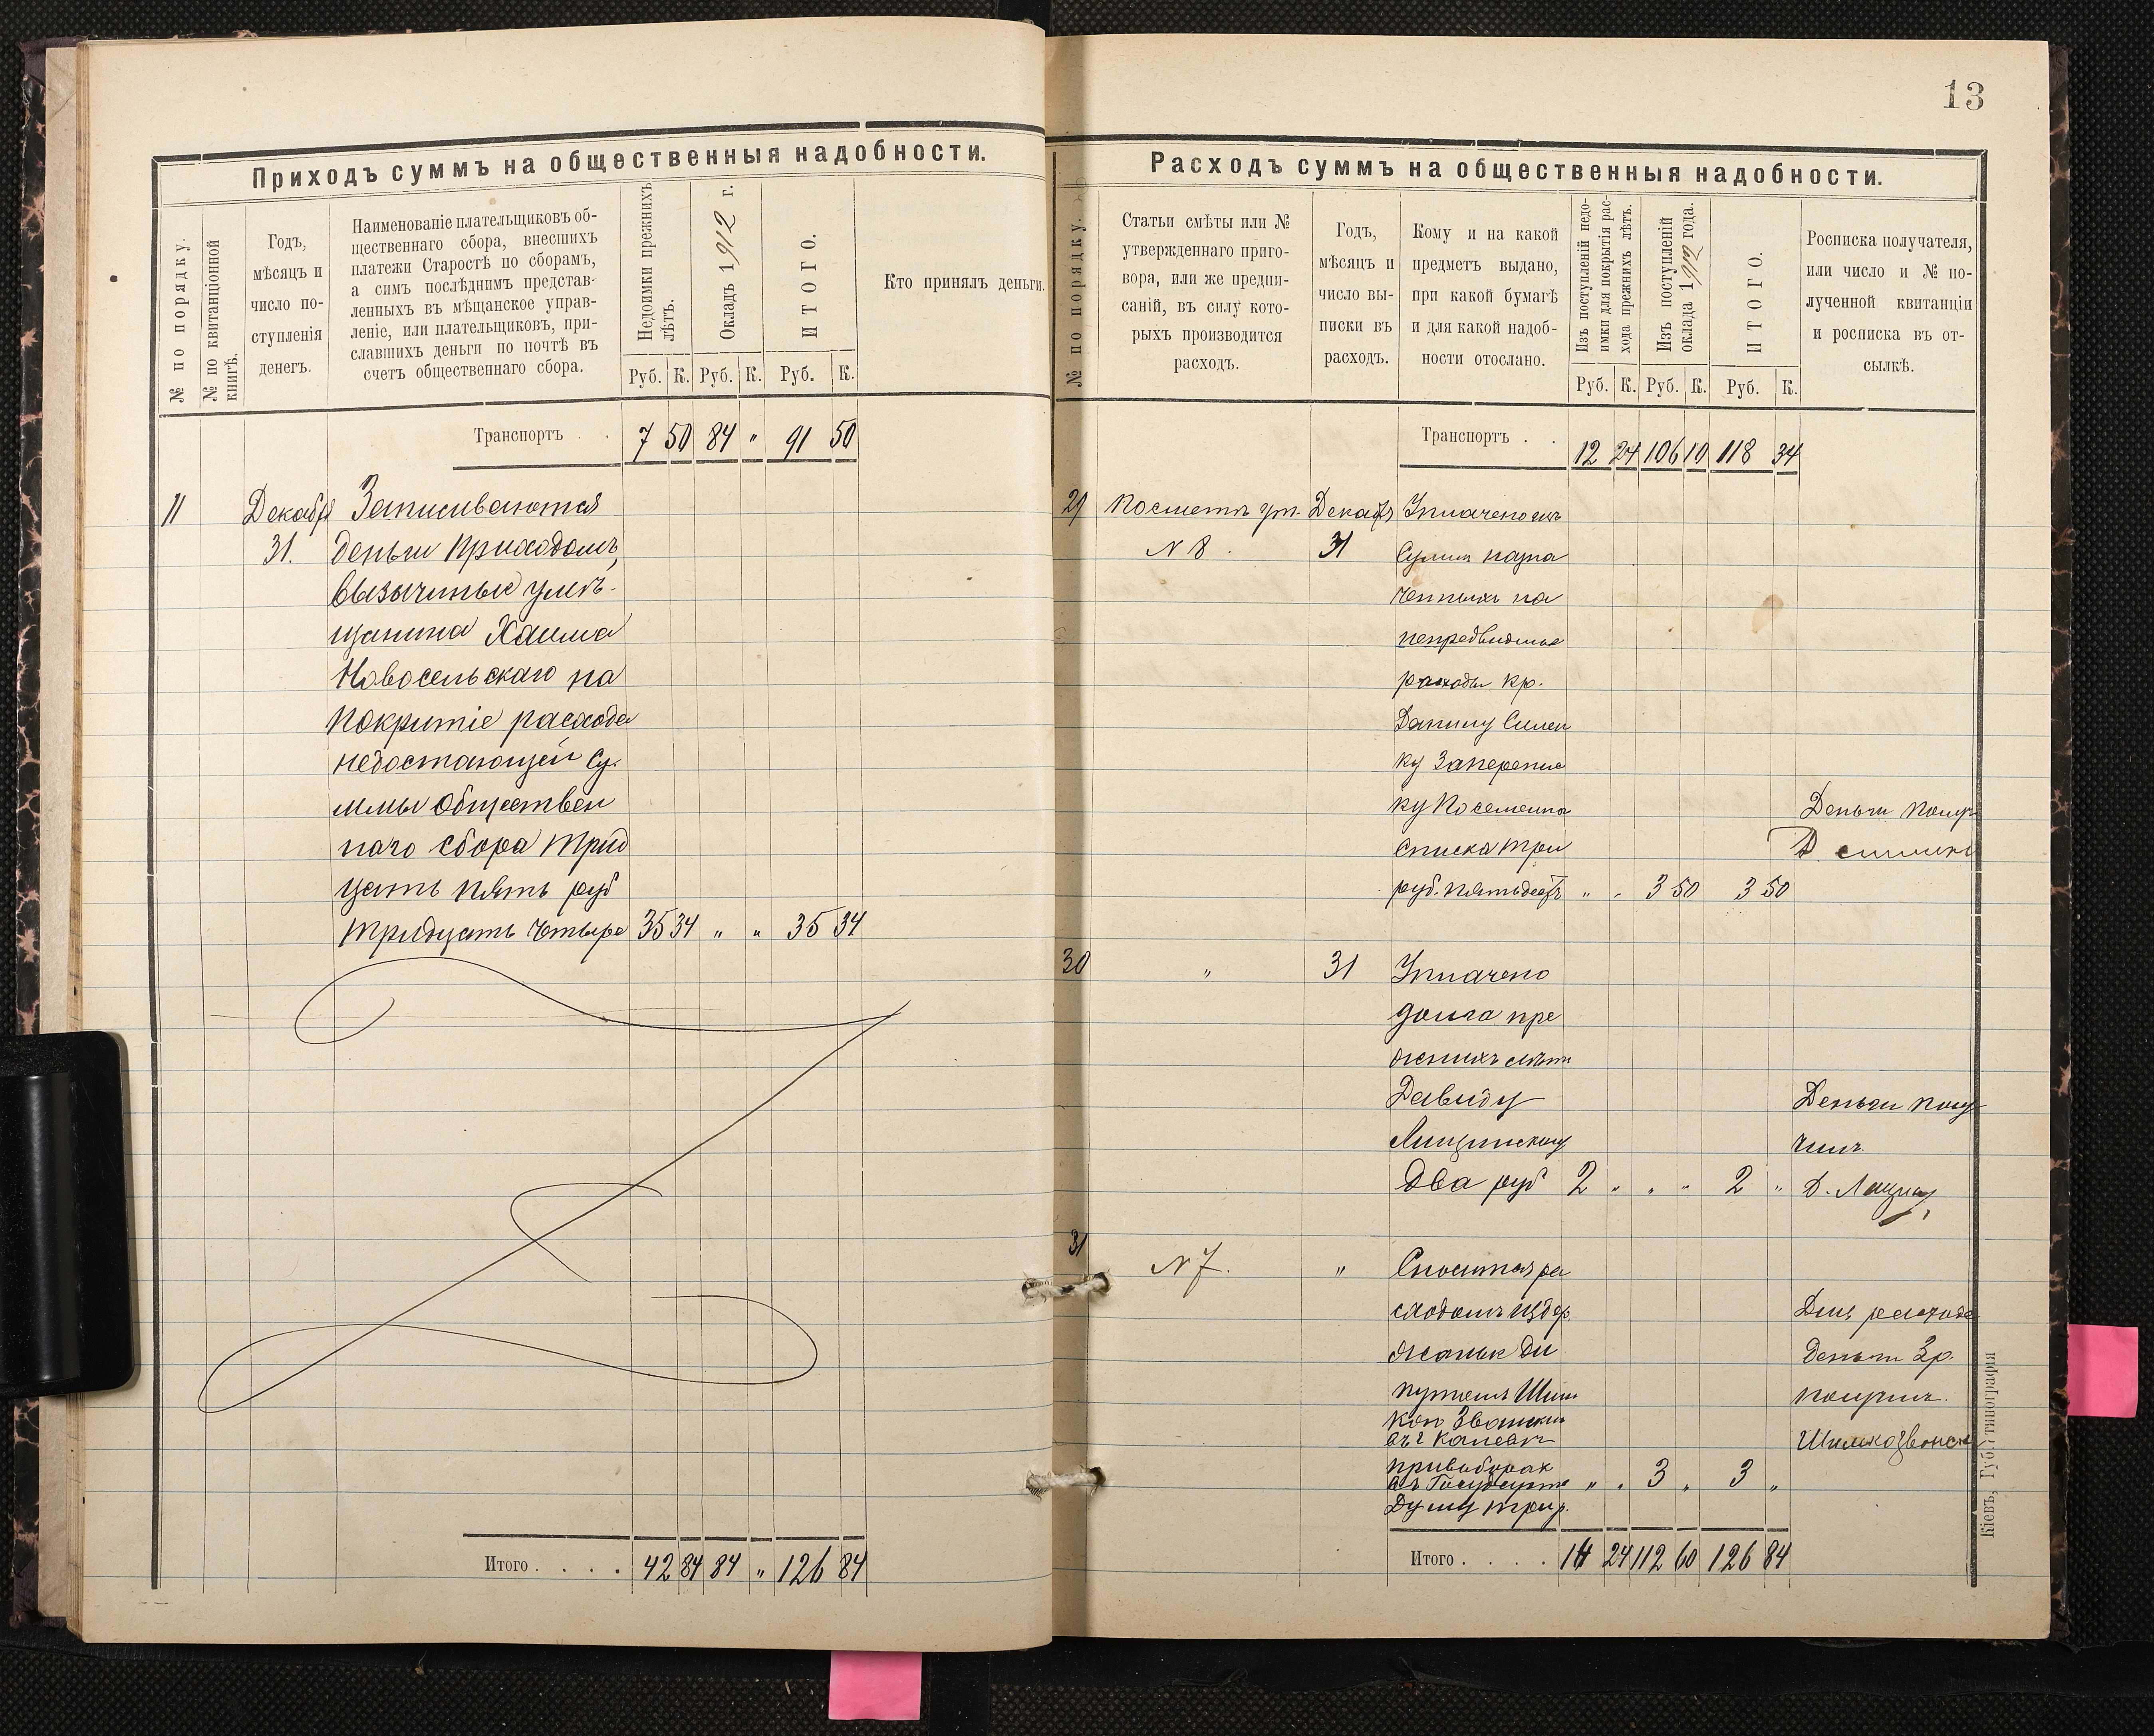 Приходъ суммъ на общественныя надобности.
№ по порядку.
№ по квитанціонной
книгѣ.
Годъ,
мѣсяцъ и
число по-
ступленія
денегъ.
Наименованіе плательщиковъ об-
щественнаго сбора, внесшихъ
платежи Старостѣ по сборамъ,
а симъ послѣднимъ представ-
ленныхъ въ мѣщанское управ-
леніе, или плательщиковъ, при-
славшихъ деньги по почтѣ въ
счетъ общественнаго сбора.
Недоимки прежнихъ
лѣтъ.
Окладъ 1912 г.
ИТОГО.
Кто принялъ деньги.
Руб. К. Руб. К. Руб. К.
Транспортъ . . 7 50 84 " 91 50
11 Декабря Записиваются
31. деньги приходомъ,
вызычиные у мѣ-
щанина Хаима
Новосельскаго на
покритіе расхода
недостающей Су-
ммы обществен
наго сбора трид
цать пять руб
тридцать четыре 35 34 " " 35 34
Итого . . . . 42 84 84 " 126 84
13
Расходъ суммъ на общественныя надобности.
№ по порядку.
Статьи смѣты или №
утвержденнаго приго-
вора, или же предпи-
саній, въ силу кото-
рыхъ производится
расходъ.
Годъ,
мѣсяцъ и
число вы-
писки въ
расходъ.
Кому и на какой
предметъ выдано,
при какой бумагѣ
и для какой надоб-
ности отослано.
Изъ поступленій недо-
имки для покрытія рас-
хода прежнихъ лѣтъ.
Изъ поступленій
оклада 1912 года.
ИТОГО.
Росписка получателя,
или число и № по-
лученной квитанціи
и росписка въ от-
сылкѣ.
Руб. К. Руб. К. Руб. К.
Транспортъ . . 12 24 106 10 118 34
29 По смете ут. Декабр Уплачено изъ
N 8. 31 Сумм назна
ченныхъ на
непредвидные
расходы кр.
Данилу Силен
ку за
ку Посемейна
списка три Деньги получ
руб. пятьдесятъ " " 3 50 3 50
30 " 31 Уплачено
долга пре
жнихъ лѣтъ
Давиду Деньги полу
Лищинскому чилъ
Два руб 2 " " " 2 " Д. Лищин
31 N 7. " Спишется ра
сходомъ издер Для расхода
жаные Де Деньги 3р.
путатъ Шим получилъ.
кои Званскимъ
въ г Каневъ Шимко Званск
при выборах
въ Государств " " 3 " 3 "
Думу три р.
Итого . . . . 14 24 112 60 126 84
Кіевъ, Губ. типографія